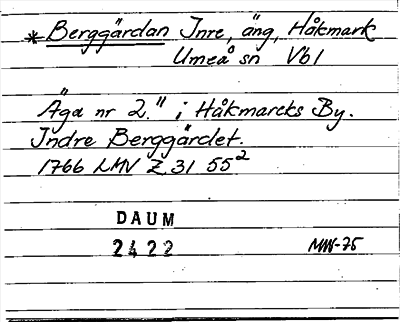 * Berggärdan Inre, äng, Håkmark
Umeå sn Vbl
Äga nr 2." i Håkmarcks By.
Indre Berggärdet.
1766 LMV Z 31 55²
DAUM
2422
MW-75